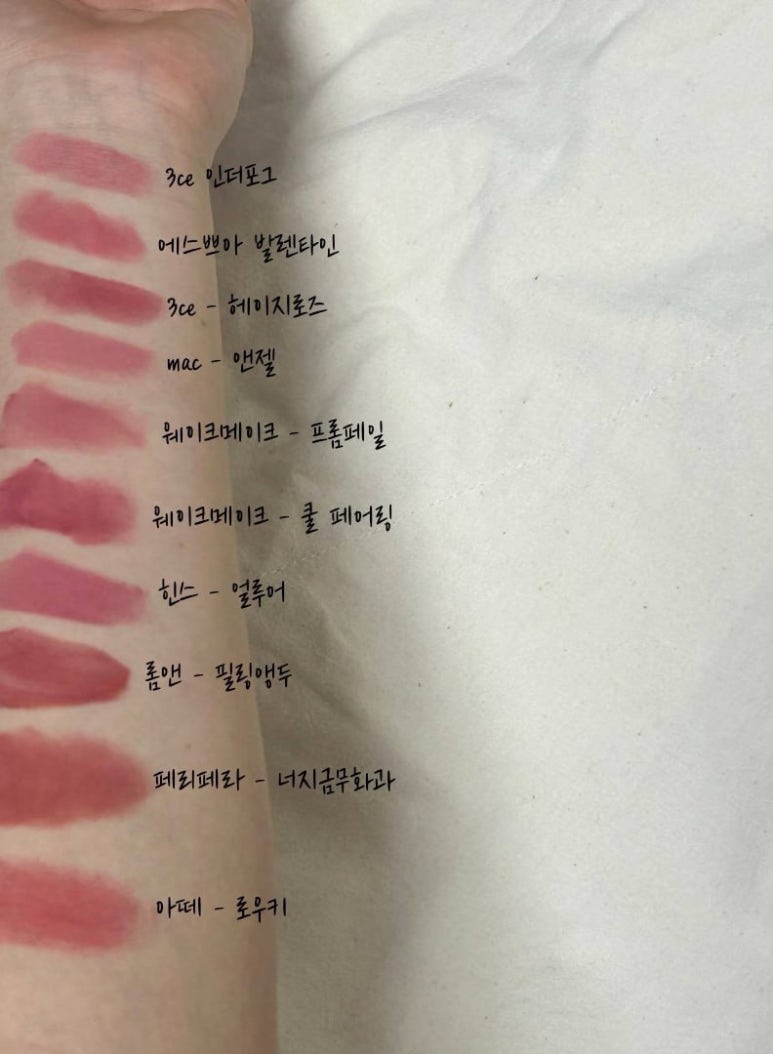 3ce 인더포그
에스쁘아 발렌타인
3ce - 헤이지로즈
mac - 앤젤
웨이크메이크 - 프롬페일
웨이크메이크 - 쿨 페어링
힌스 - 얼루어
롬앤 - 필링앵두
페리페라 - 너지금무화과
아떼 - 로우키